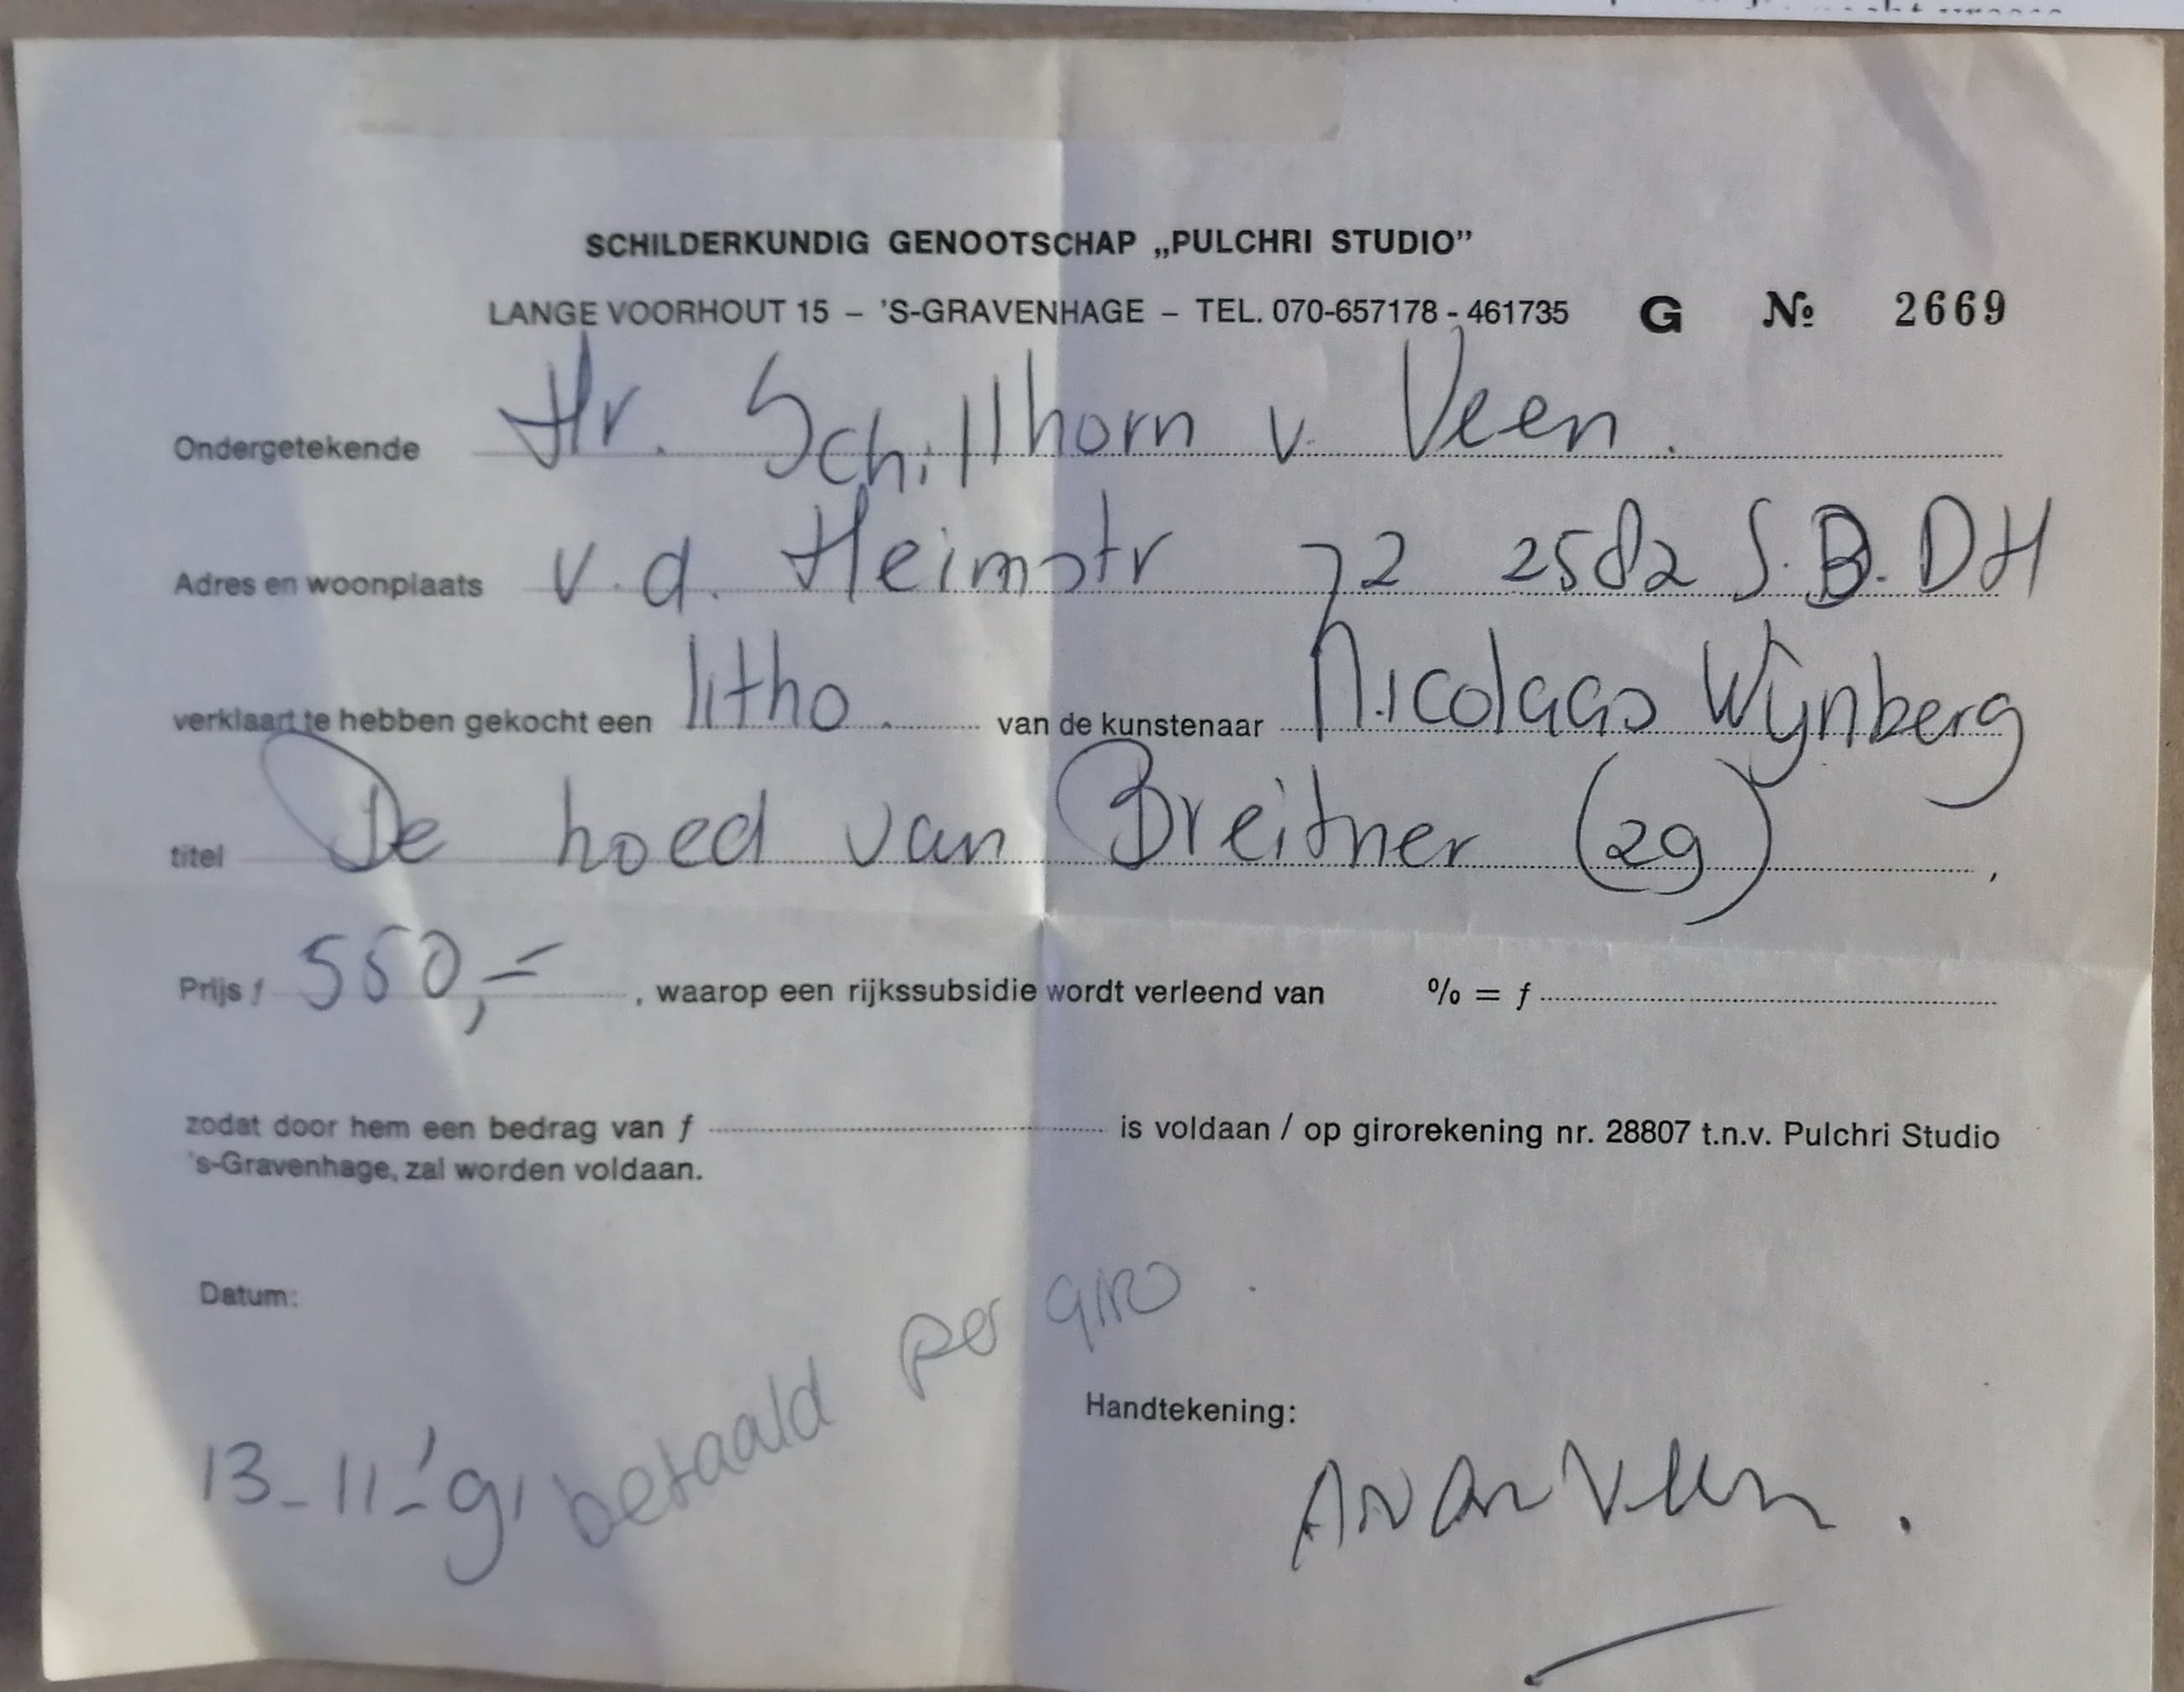 SCHILDERKUNDIG GENOOTSCHAP „PULCHRI STUDIO”
LANGE VOORHOUT 15 – 'S-GRAVENHAGE – TEL. 070-657178 - 461735 G № 2669
Ondergetekende Hr. Schillhorn v. Veen.
Adres en woonplaats v.d. Heimstr 72 2582 S.B. DH
verklaart te hebben gekocht een litho. van de kunstenaar Nicolaas Wijnberg
titel De hoed van Breitner (29) ,
Prijs f 550,= , waarop een rijkssubsidie wordt verleend van % = f
zodat door hem een bedrag van f is voldaan / op girorekening nr. 28807 t.n.v. Pulchri Studio
's-Gravenhage, zal worden voldaan.
Datum:
betaald per giro.
Handtekening:
13-11-'91